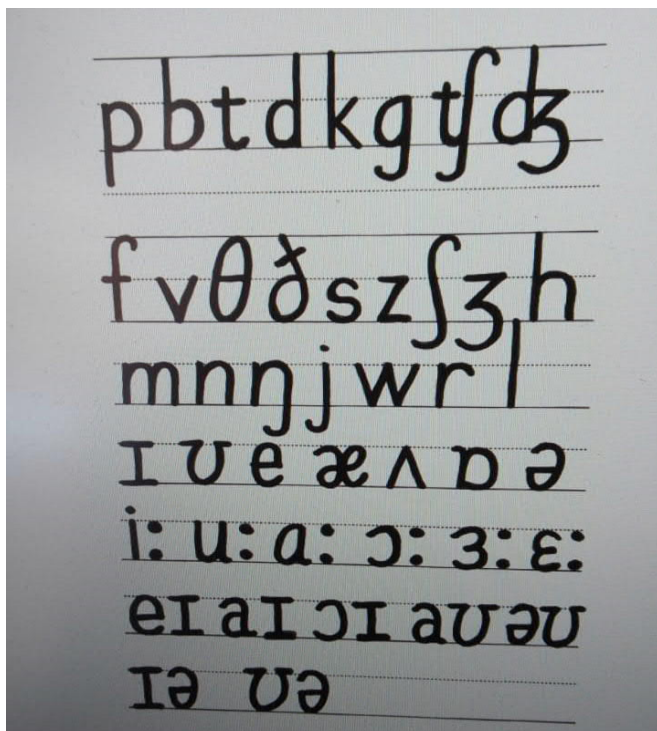 p b t d k g tʃ dʒ
f v θ ð s z ʃ ʒ h
m n ŋ j w r l
ɪ ʊ e æ ʌ ɒ ə
i: u: ɑ: ɔ: ɜ: ɛ:
eɪ aɪ ɔɪ aʊ əʊ
ɪə ʊə